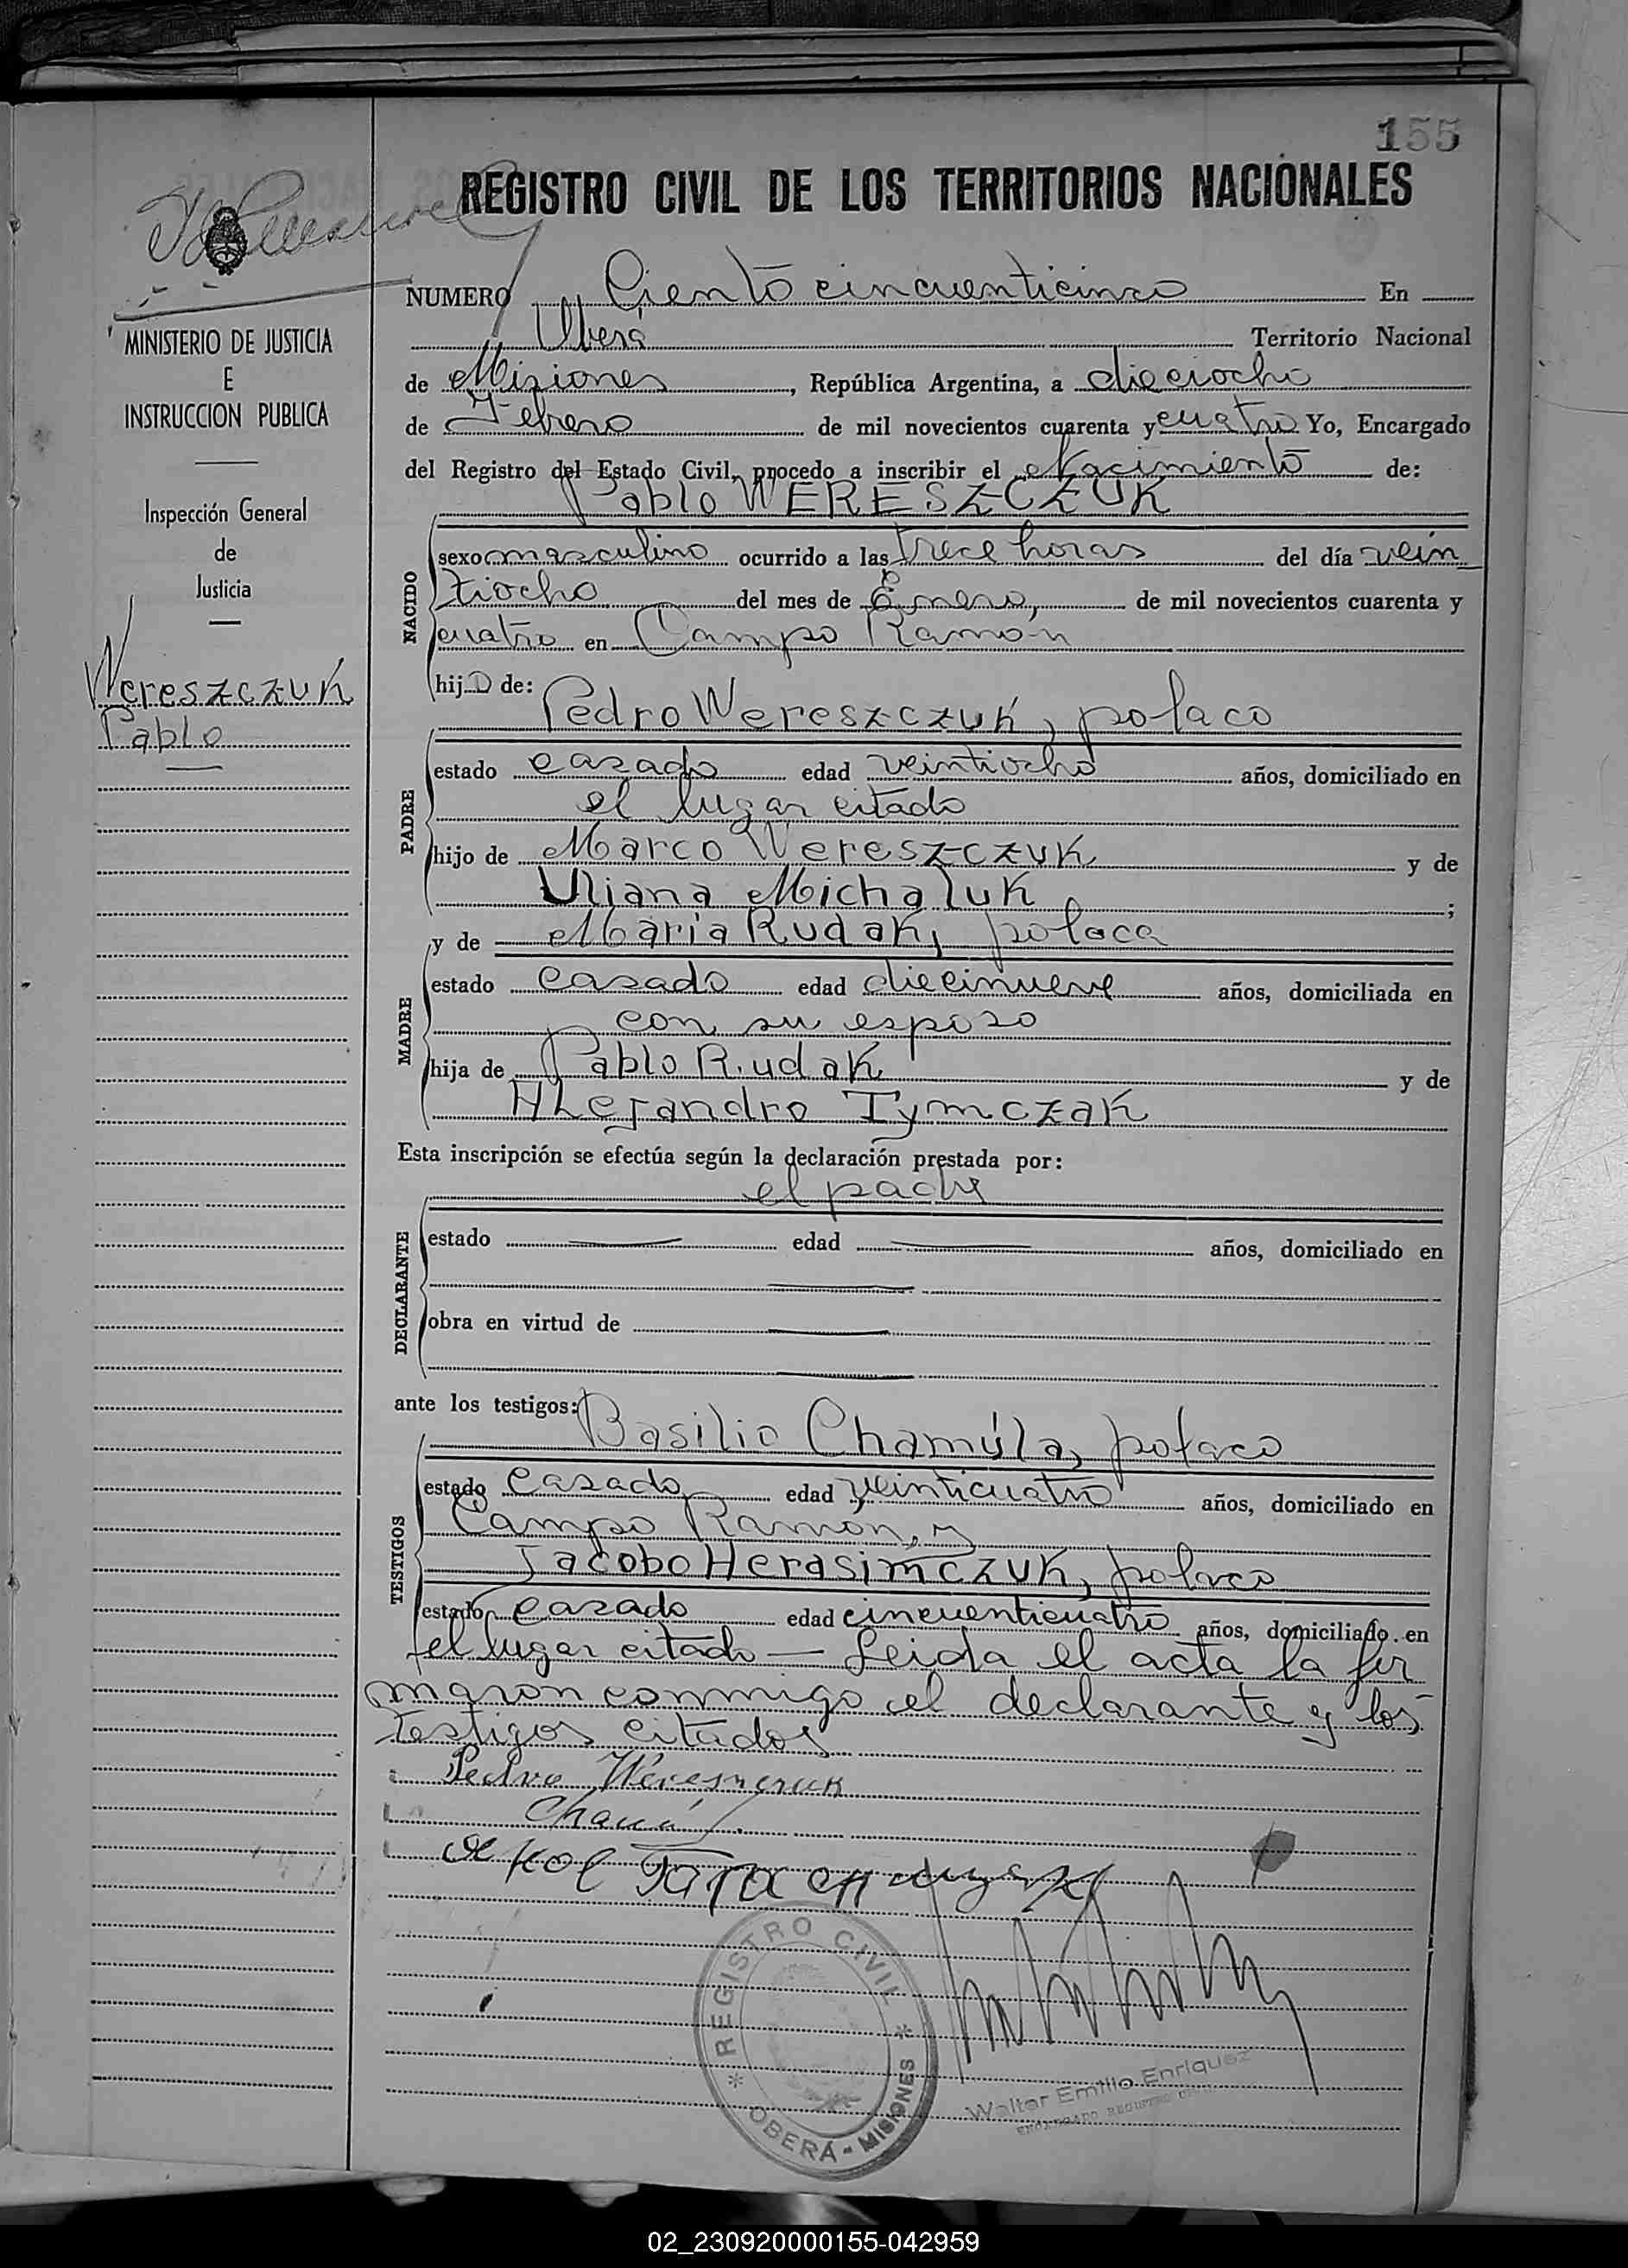 155
REGISTRO CIVIL DE LOS TERRITORIOS NACIONALES
MINISTERIO DE JUSTICIA
E
INSTRUCCION PUBLICA
Inspección General
de
Justicia
Wereszczuk
Pablo
NUMERO Ciento cincuenticinco En
Oberá Territorio Nacional
de Misiones, República Argentina, a dieciocho
de Febrero de mil novecientos cuarenta y cuatro Yo, Encargado
del Registro del Estado Civil, procedo a inscribir el Nacimiento de:
Pablo WERESZCZUK
NACIDO
sexo masculino ocurrido a las trece horas del día vein
tiocho del mes de Enero, de mil novecientos cuarenta y
cuatro en Campo Ramón
hijo de:
Pedro Wereszczuk, polaco
PADRE
estado casado edad veintiocho años, domiciliado en
el lugar citado
hijo de Marco Wereszczuk y de
Uliana Michaluk ;
y de María Rudak, polaca
MADRE
estado casado edad diecinueve años, domiciliada en
con su esposo
hija de Pablo Rudak y de
Alejandro Tymczak
Esta inscripción se efectúa según la declaración prestada por:
el padre
DECLARANTE
estado edad años, domiciliado en
obra en virtud de
ante los testigos:
Basilio Chamúla, polaco
TESTIGOS
estado casado edad veinticuatro años, domiciliado en
Campo Ramón, y
Jacobo Herasimczuk, polaco
estado casado edad cincuenticuatro años, domiciliado en
el lugar citado — Leida el acta la fir
maron conmigo el declarante y los
testigos citados
Pedro Wereszczuk
REGISTRO CIVIL
OBERÁ - MISIONES
Walter Emilio Enriquez
ENCARGADO REGISTRO CIVIL
02_230920000155-042959